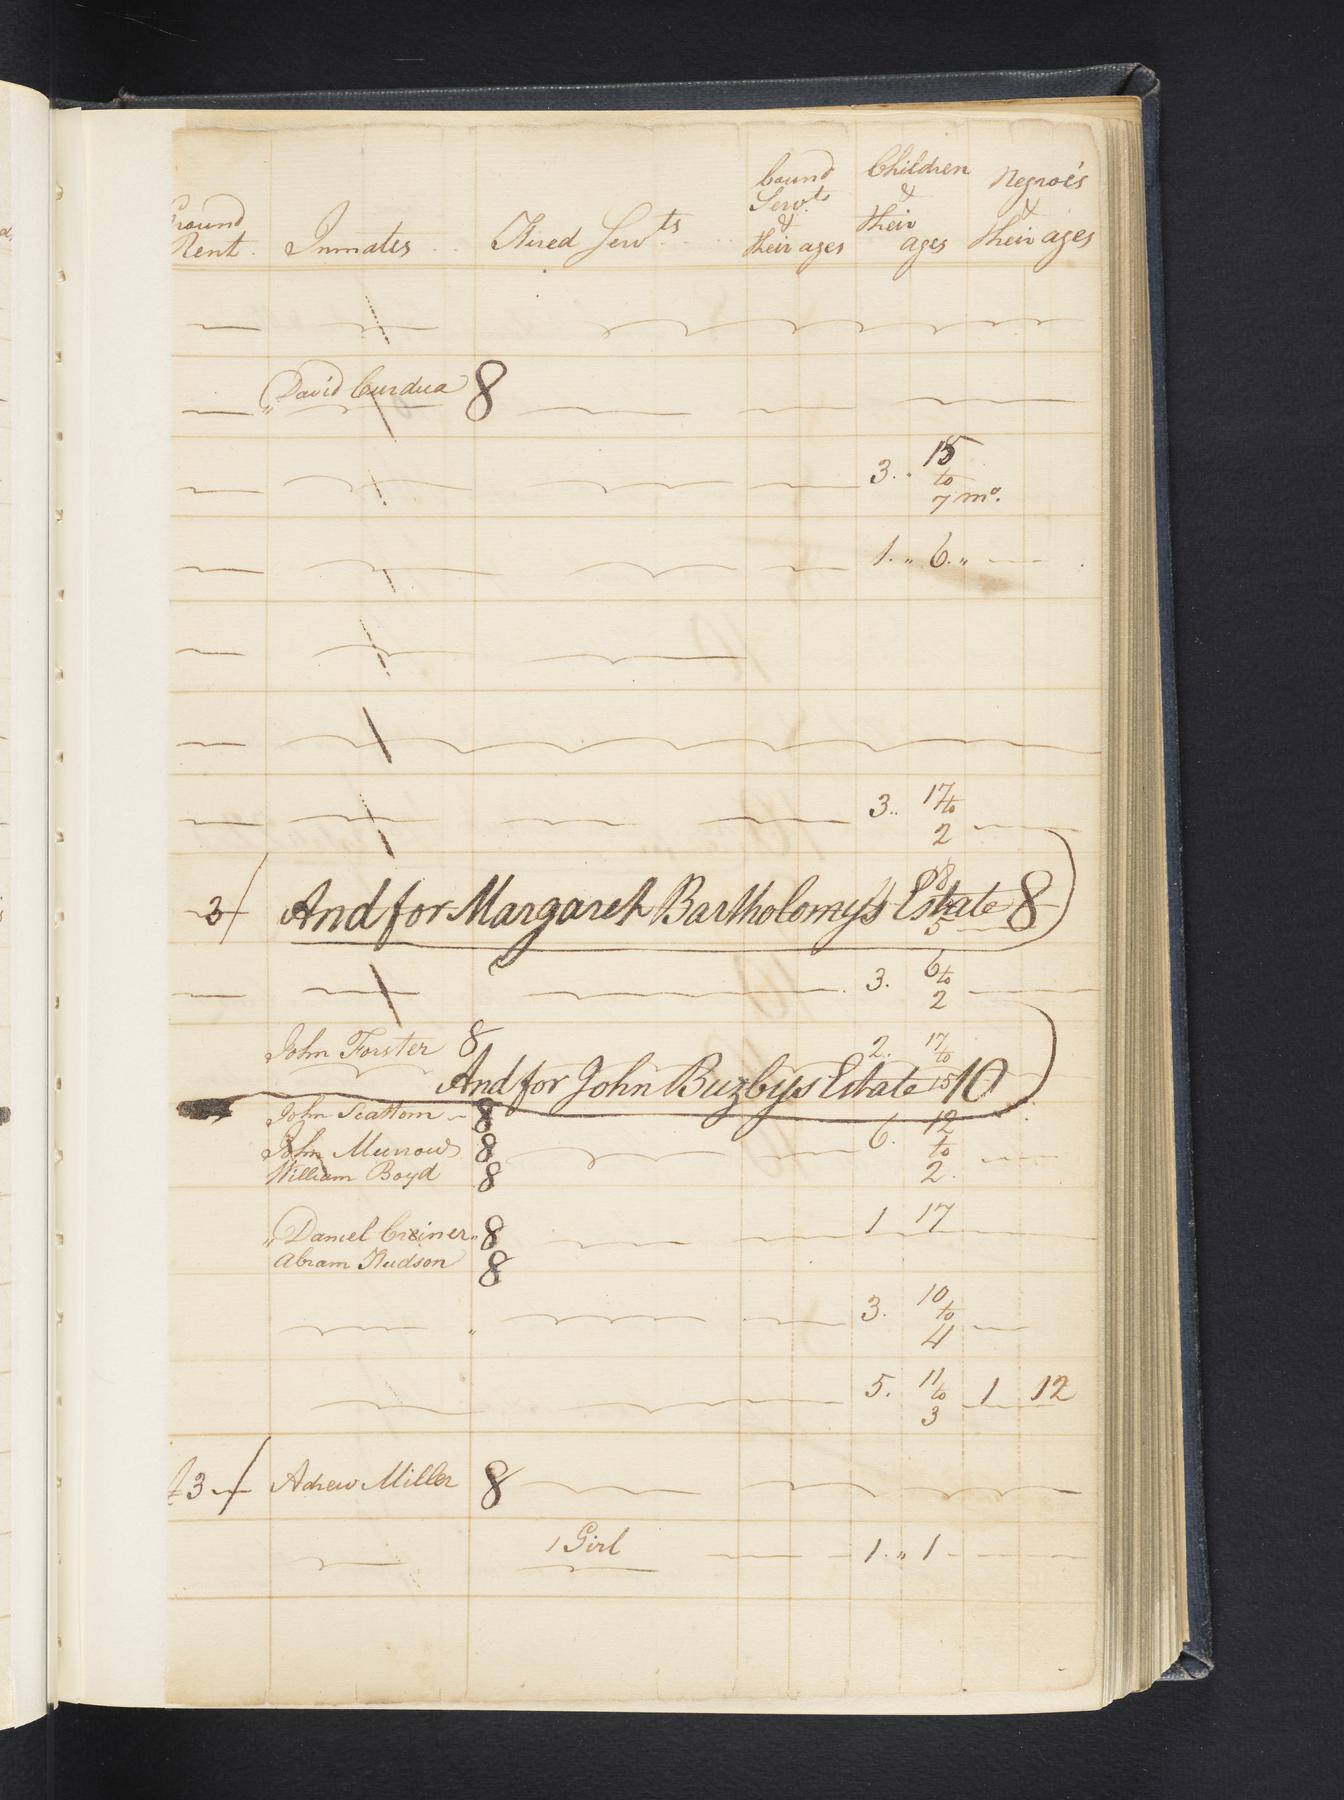 Ground Rent Inmates Hired Servts bound Servts & their ages Children & their ages Negroe's & their ages
David Curdua 8
3 15 to 7 mo.
1 " 6 "
3 17 to 2
3 And for Margaret Bartholomy's Estate 8
18
5
3. 6 to 2
John Forster 8 2. 17 to 15
And for John Buzbys Estate 10
John Scattom 8
John Murrow 8 6. 12 to 2
William Boyd 8
" Daniel Creiner " 8 1 17
Abram Hudson 8
3. 10 to 4
5. 11 to 3 1 12
£3 Adrew Miller 8
1 Girl 1 " 1